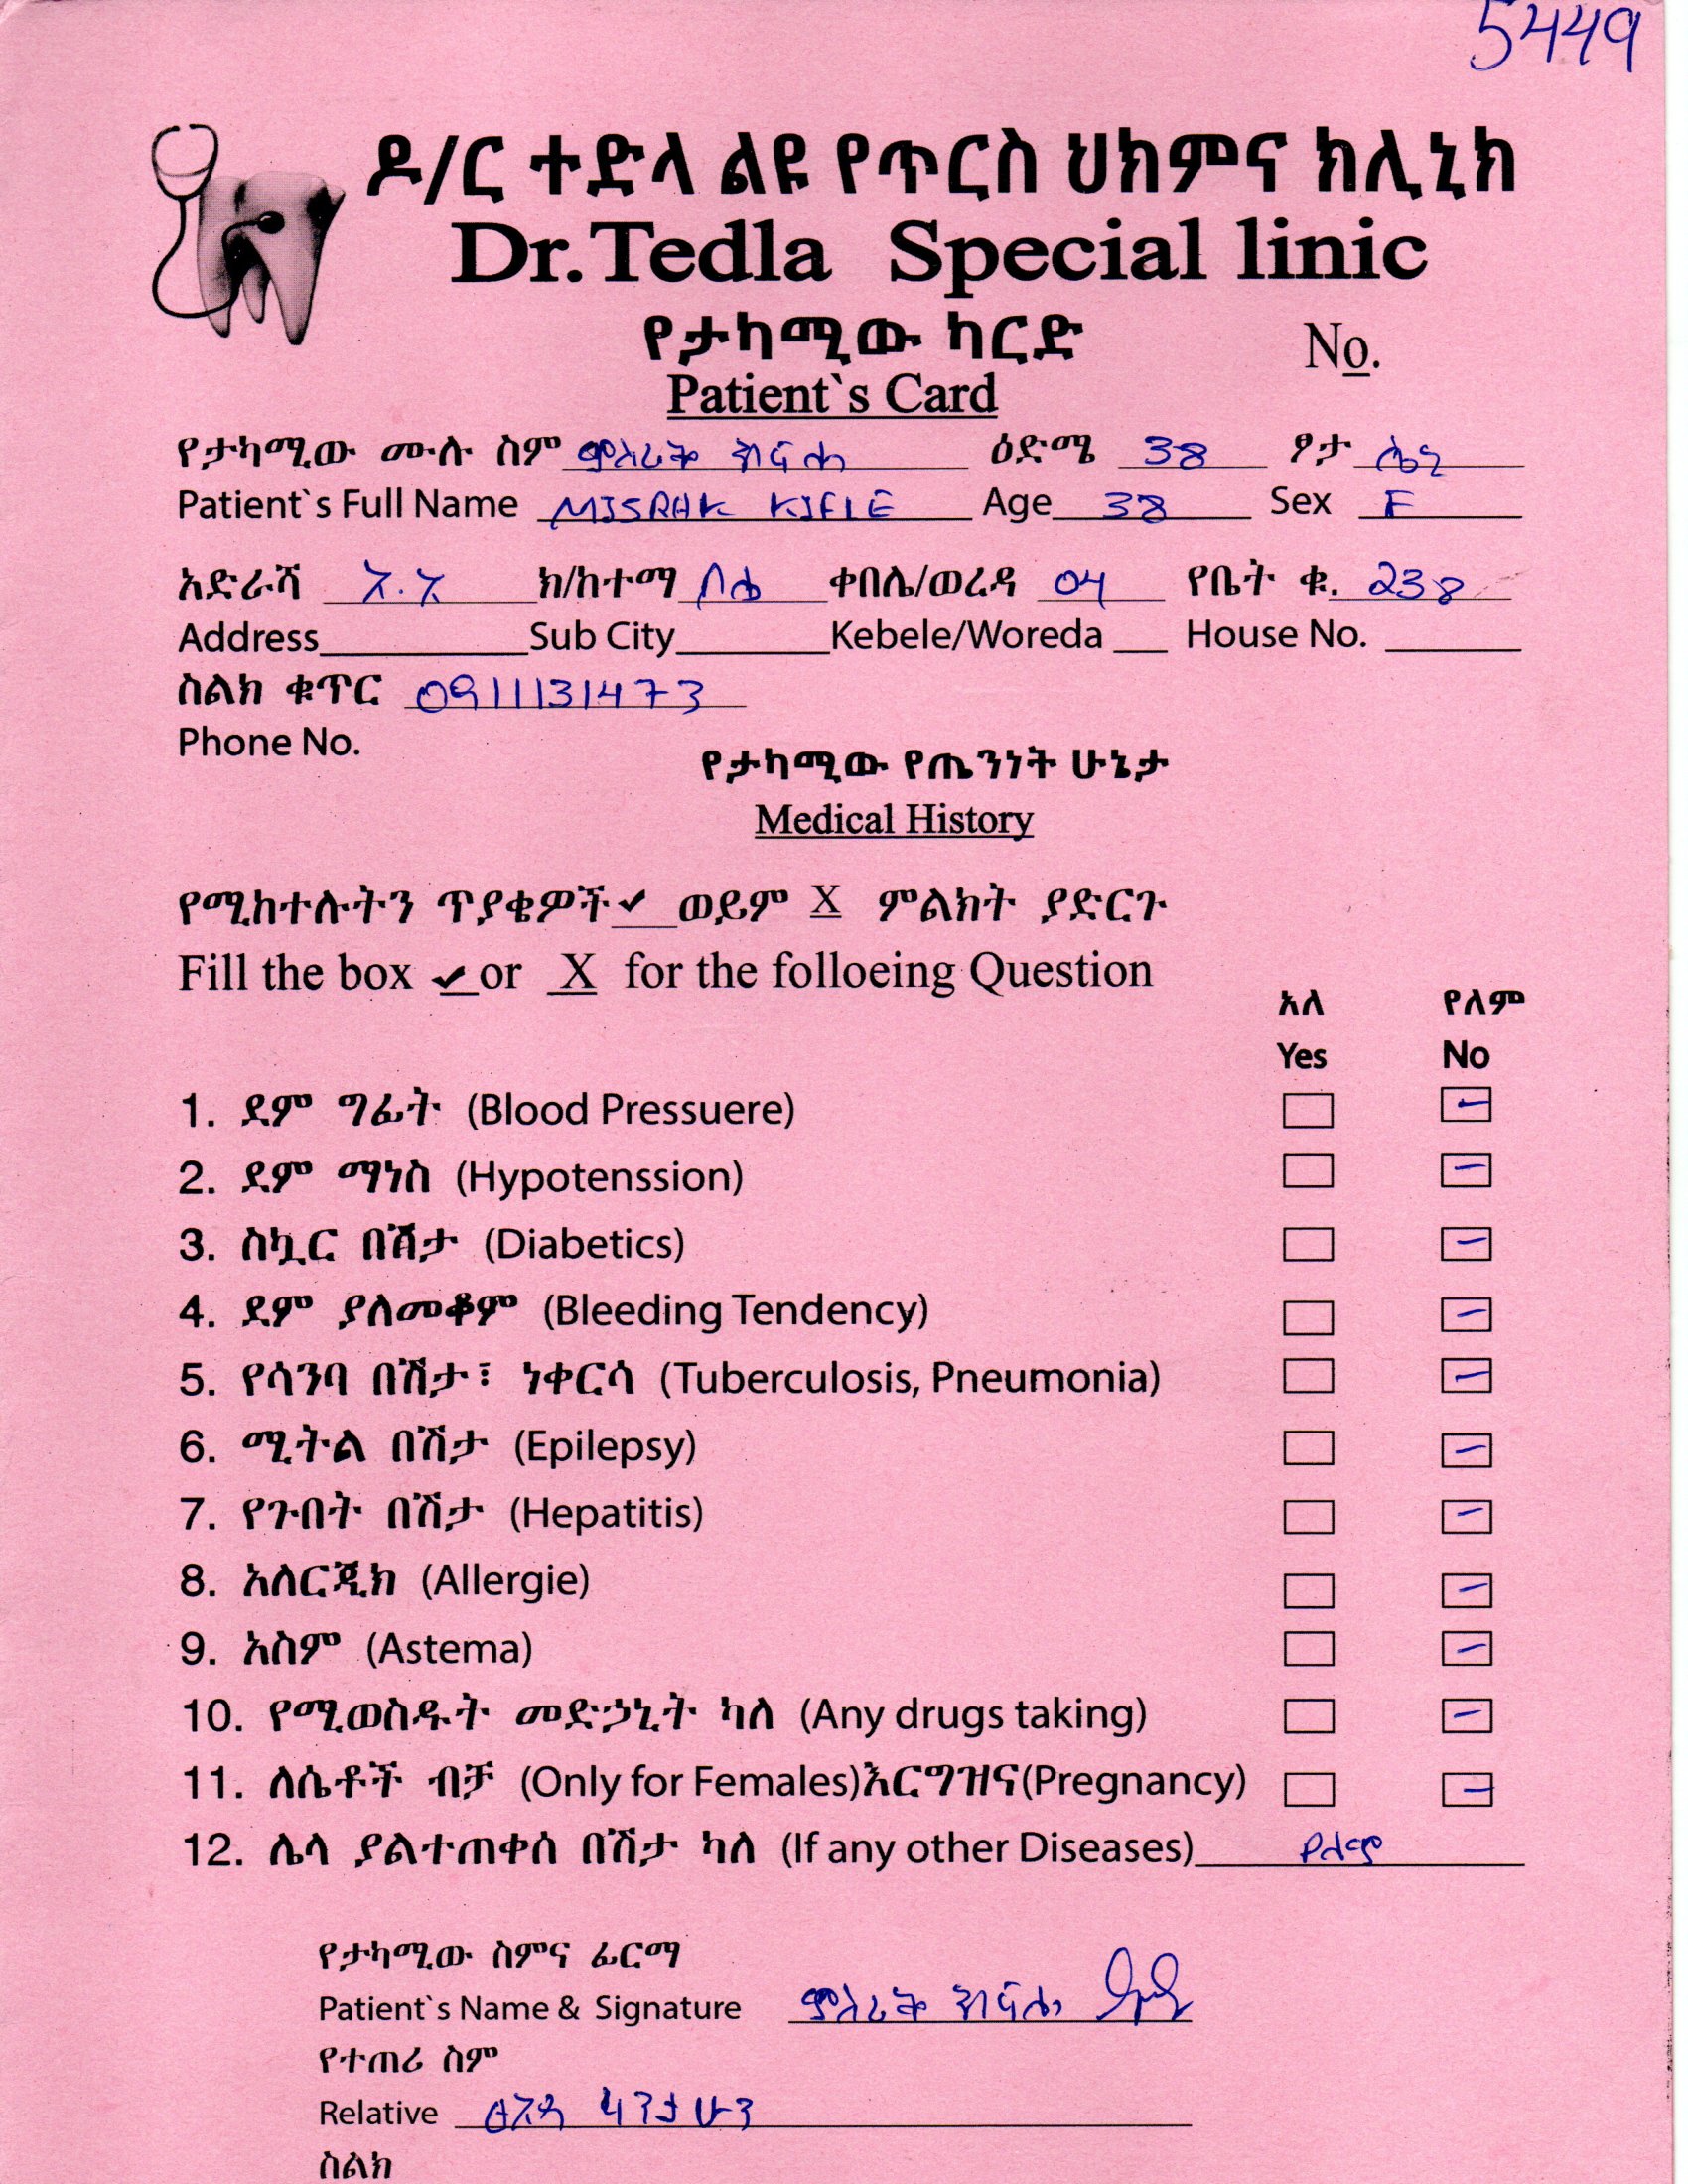 5449
ዶ/ር ተድላ ልዩ የጥርስ ህክምና ክሊኒክ
Dr.Tedla Special linic
የታካሚው ካርድ
No.
Patient`s Card
የታካሚው ሙሉ ስም ምስራቅ ክፍሌ ዕድሜ 38 ፆታ ሴት
Patient`s Full Name MISRAK KIFLE Age 38 Sex F
አድራሻ አ.አ ክ/ከተማ ቦሌ ቀበሌ/ወረዳ 04 የቤት ቁ. 238
Address Sub City Kebele/Woreda House No.
ስልክ ቁጥር 0911131473
Phone No.
የታካሚው የጤንነት ሁኔታ
Medical History
የሚከተሉትን ጥያቄዎች ✔ ወይም X ምልክት ያድርጉ
Fill the box ✔ or X for the folloeing Question
አለ የለም
Yes No
1. ደም ግፊት (Blood Pressuere)
2. ደም ማነስ (Hypotenssion)
3. ስኳር በሽታ (Diabetics)
4. ደም ያለመቆም (Bleeding Tendency)
5. የሳንባ በሽታ፣ ነቀርሳ (Tuberculosis, Pneumonia)
6. ሚትል በሽታ (Epilepsy)
7. የጉበት በሽታ (Hepatitis)
8. አለርጂክ (Allergie)
9. አስም (Astema)
10. የሚወስዱት መድኃኒት ካለ (Any drugs taking)
11. ለሴቶች ብቻ (Only for Females)እርግዝና(Pregnancy)
12. ሌላ ያልተጠቀሰ በሽታ ካለ (If any other Diseases) የለም
የታካሚው ስምና ፊርማ
Patient`s Name & Signature ምስራቅ ክፍሌ
የተጠሪ ስም
Relative
ስልክ